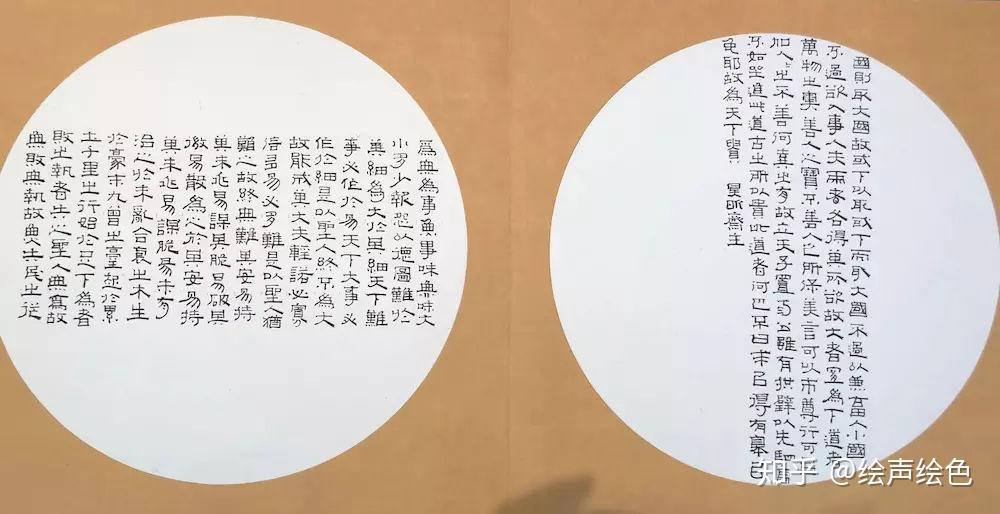 國則取大國故或下以取或下而取大國不過以兼畜人小國
不過欲入事人夫兩者各得其所欲故大者宜為下道者
萬物之奧善人之寶不善人之所保美言可以市尊行可
加人之不善何棄之有故立天子置三公雖有拱璧以先駟馬
不如坐進此道古之所以貴此道者何也不曰求以得有罪以
免耶故為天下貴 星昕齋主
為無為事無事味無味大
小多少報怨以德圖難於
其細為大於其細天下難
事必作於易天下大事必
作於細是以聖人終不為大
故能成其大夫輕諾必寡
信多易必多難是以聖人猶
難之故終無難其安易持
其未兆易謀其脆易破其
微易散為之於其安易持
其未兆易謀脆易未有
治之於未亂合抱之木生
於毫末九層之臺起於累
土千里之行始於足下為者
敗之執者失之聖人無為故
無敗無執故無失民之從
知乎 @绘声绘色